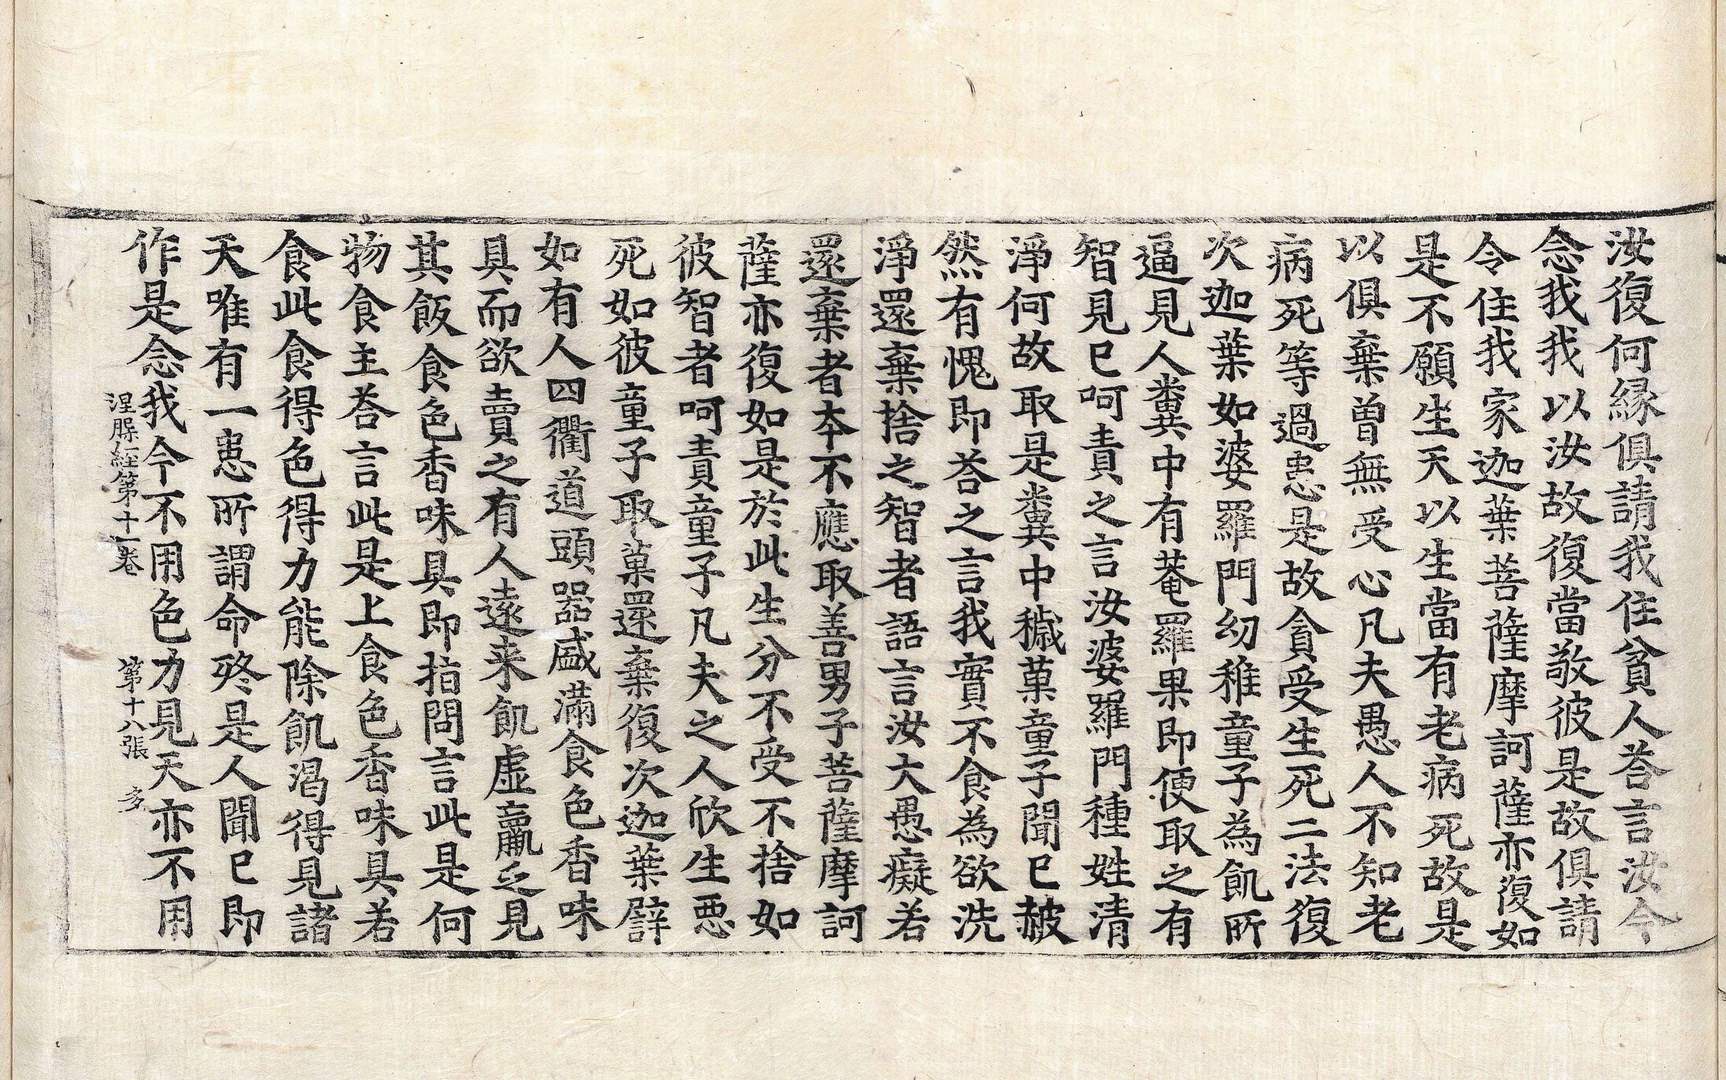 汝復何緣俱請我住貧人荅言汝今
念我我以汝故復當敬彼是故俱請
令住我家迦葉菩薩摩訶薩亦復如
是不願生天以生當有老病死故是
以俱棄曾無受心凡夫愚人不知老
病死等過患是故貪受生死二法復
次迦葉如婆羅門幼稚童子為飢所
逼見人糞中有菴羅果即便取之有
智見已呵責之言汝婆羅門種姓清
淨何故取是糞中穢菓童子聞已赧
然有愧即荅之言我實不食為欲洗
淨還棄捨之智者語言汝大愚癡若
還棄者夲不應取善男子菩薩摩訶
薩亦復如是於此生分不受不捨如
彼智者呵責童子凡夫之人欣生惡
死如彼童子取菓還棄復次迦葉譬
如有人四衢道頭器盛滿食色香味
具而欲賣之有人遠来飢虛羸乏見
其飯食色香味具即指問言此是何
物食主荅言此是上食色香味具若
食此食得色得力能除飢渴得見諸
天唯有一患所謂命終是人聞已即
作是念我今不用色力見天亦不用
涅槃経第十一卷 第十八張 多